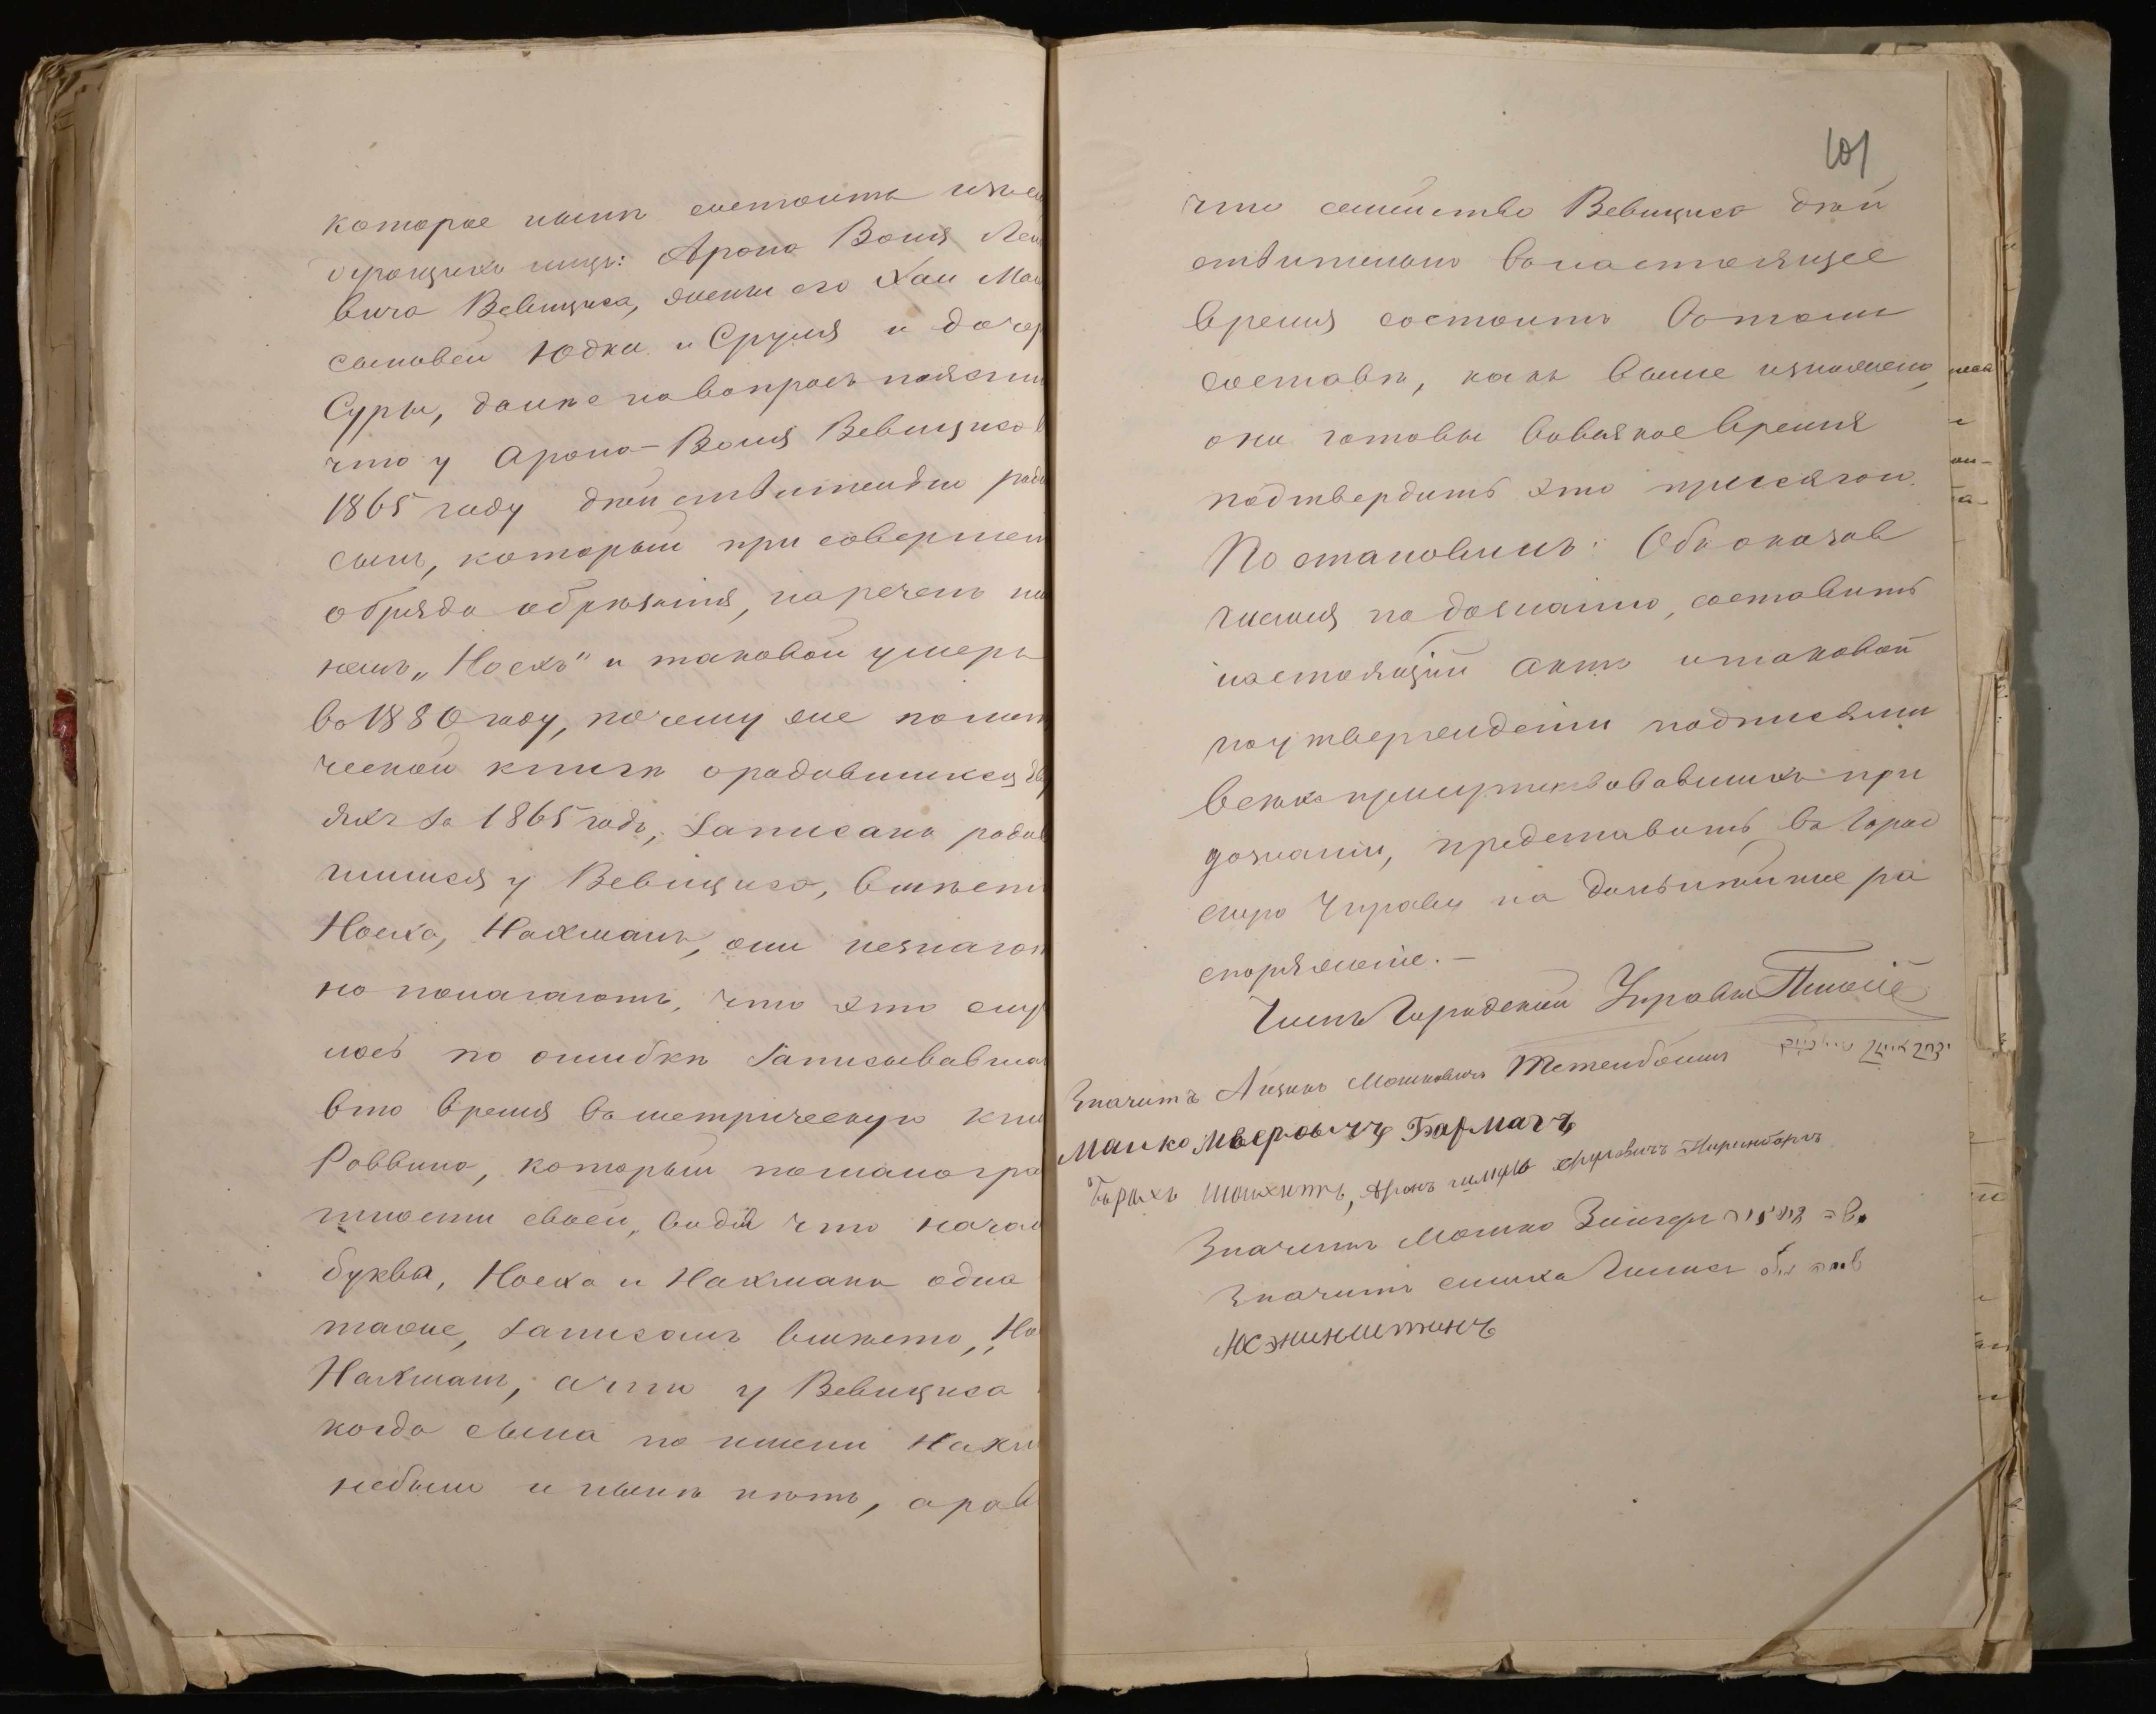 которое нынѣ состоитъ изъ слѣ
дующихъ лицъ: Арона Волля Лей
вича Вевищиса, жены его Хаи Мов
сыновей Юдки и Сруля и дочер
Суры, далѣе на вопросъ пояснил
что у Арона-Волля Вевищиса в
1865 году дѣйствительно роди
сынъ, который при совершен
обряда обрѣзанія, нареченъ им
немъ „Носхъ" и таковой умеръ
въ 1880 году, почему же по мет
ческой книгѣ о родившихся Евр
яхъ за 1865 годъ, записанъ родив
шимся у Вевищиса, вмѣсто
Носха, Нахманъ, они незнаютъ
но полагаютъ, что это случ
лось по ошибкѣ записывавша
въ то время въ метрическую кни
Раввина, который по малогра
мотности своей, видя что начал
буква, Носха и Нахмана одна
таже, записалъ вмѣсто „Но
Нахманъ, а что у Вевищиса н
когда сына по имени Нахм
небыло и нынѣ нѣтъ, а рав
101
что семейство Вевищиса дѣй
ствительно въ настоящее
время состоитъ въ томъ
составѣ, какъ выше изложено,
они готовы во всякое время
подтвердить это присягой.
Постановилъ: Объ оказав
шемся по дознанію, составить
настоящій актъ и таковой
по утвержденіи подписями
всѣхъ присутствовавшихъ при
дознаніи, представить въ Город
скую Управу на дальнѣйшее ра
споряженіе.—
Членъ Городской Управы
Значитъ Айзикъ Мошковичъ Тетенбаумъ
Манко Мверовичъ Бармачъ
Борухъ Шонхитъ, Аронъ Шмуль Сруловичъ Ниринбергъ
Значитъ Мошко Зингеръ
Значитъ Симха